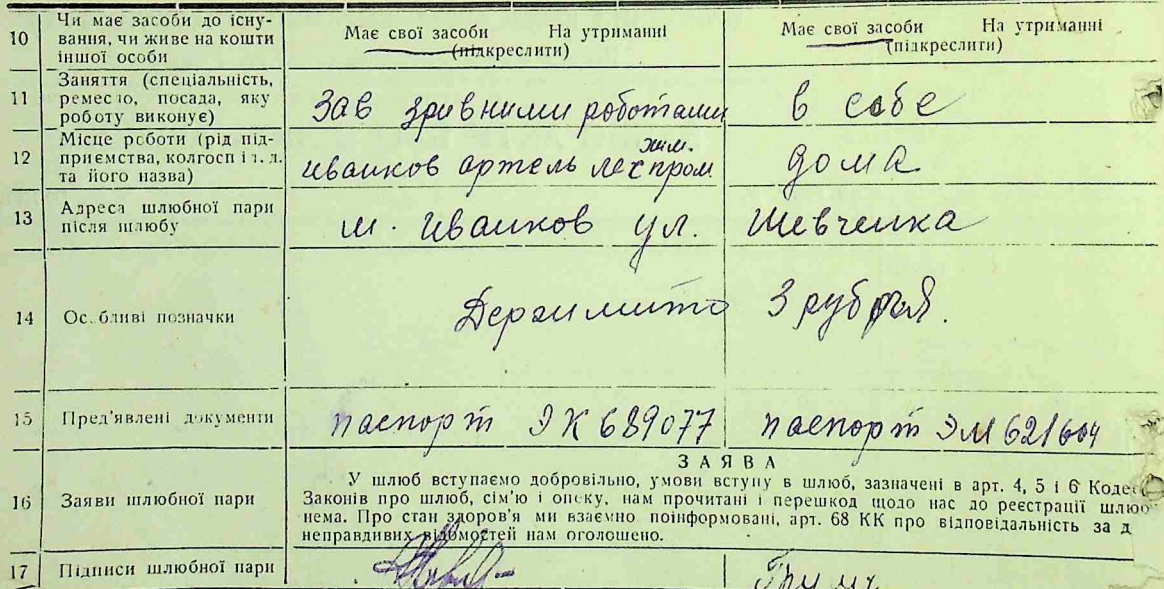 10 Чи має засоби до існу-
вання, чи живе на кошти
іншої особи
Має свої засоби На утриманні
(підкреслити)
Має свої засоби На утриманні
(підкреслити)
11 Заняття (спеціальність,
ремесло, посада, яку
роботу виконує)
Зав зривними роботами
в себе
12 Місце роботи (рід під-
приємства, колгосп і т. д.
та його назва)
хим.
иванков артель лехпром
дома
13 Адреса шлюбної пари
після шлюбу
м. Иванков ул. Шевченка
14 Ос..бливі позначки
Держмито 3 рубля.
15 Пред'явлені документи
паспорт ЭК 689077
паспорт ЭМ 621604
ЗАЯВА
16 Заяви шлюбної пари
У шлюб вступаємо добровільно, умови вступу в шлюб, зазначені в арт. 4, 5 і 6 Кодек
Законів про шлюб, сім'ю і опіку, нам прочитані і перешкод щодо нас до реєстрації шлюб
нема. Про стан здоров'я ми взаємно поінформовані, арт. 68 КК про відповідальність за д
неправдивих відомостей нам оголошено.
17 Підписи шлюбної пари